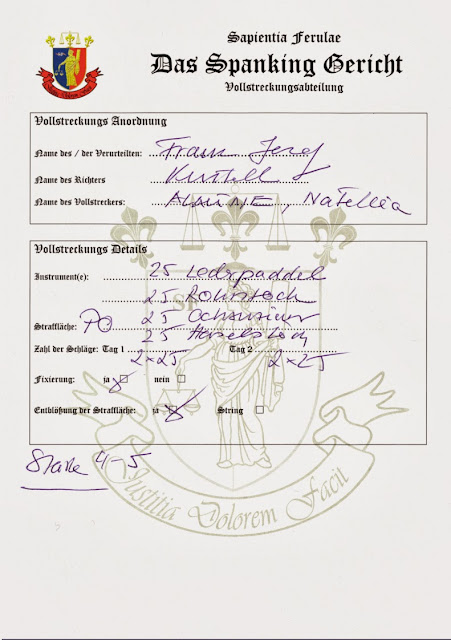 Sapientia Ferulae
Das Spanking Gericht
Vollstreckungsabteilung
Vollstreckungs Anordnung
Name des / der Verurteilten: Franz Josef
Name des Richters
Name des Vollstreckers:
Vollstreckungs Details
Instrument(e): 25 Lederpaddel
25 Rohrstock
Straffläche: PO 25 Ochsenziemer
25
Zahl der Schläge: Tag 1 2x25 Tag 2 2x25
Fixierung: ja nein
Entblößung der Straffläche: ja String
Stärke 4-5
Justitia Dolorem Facit